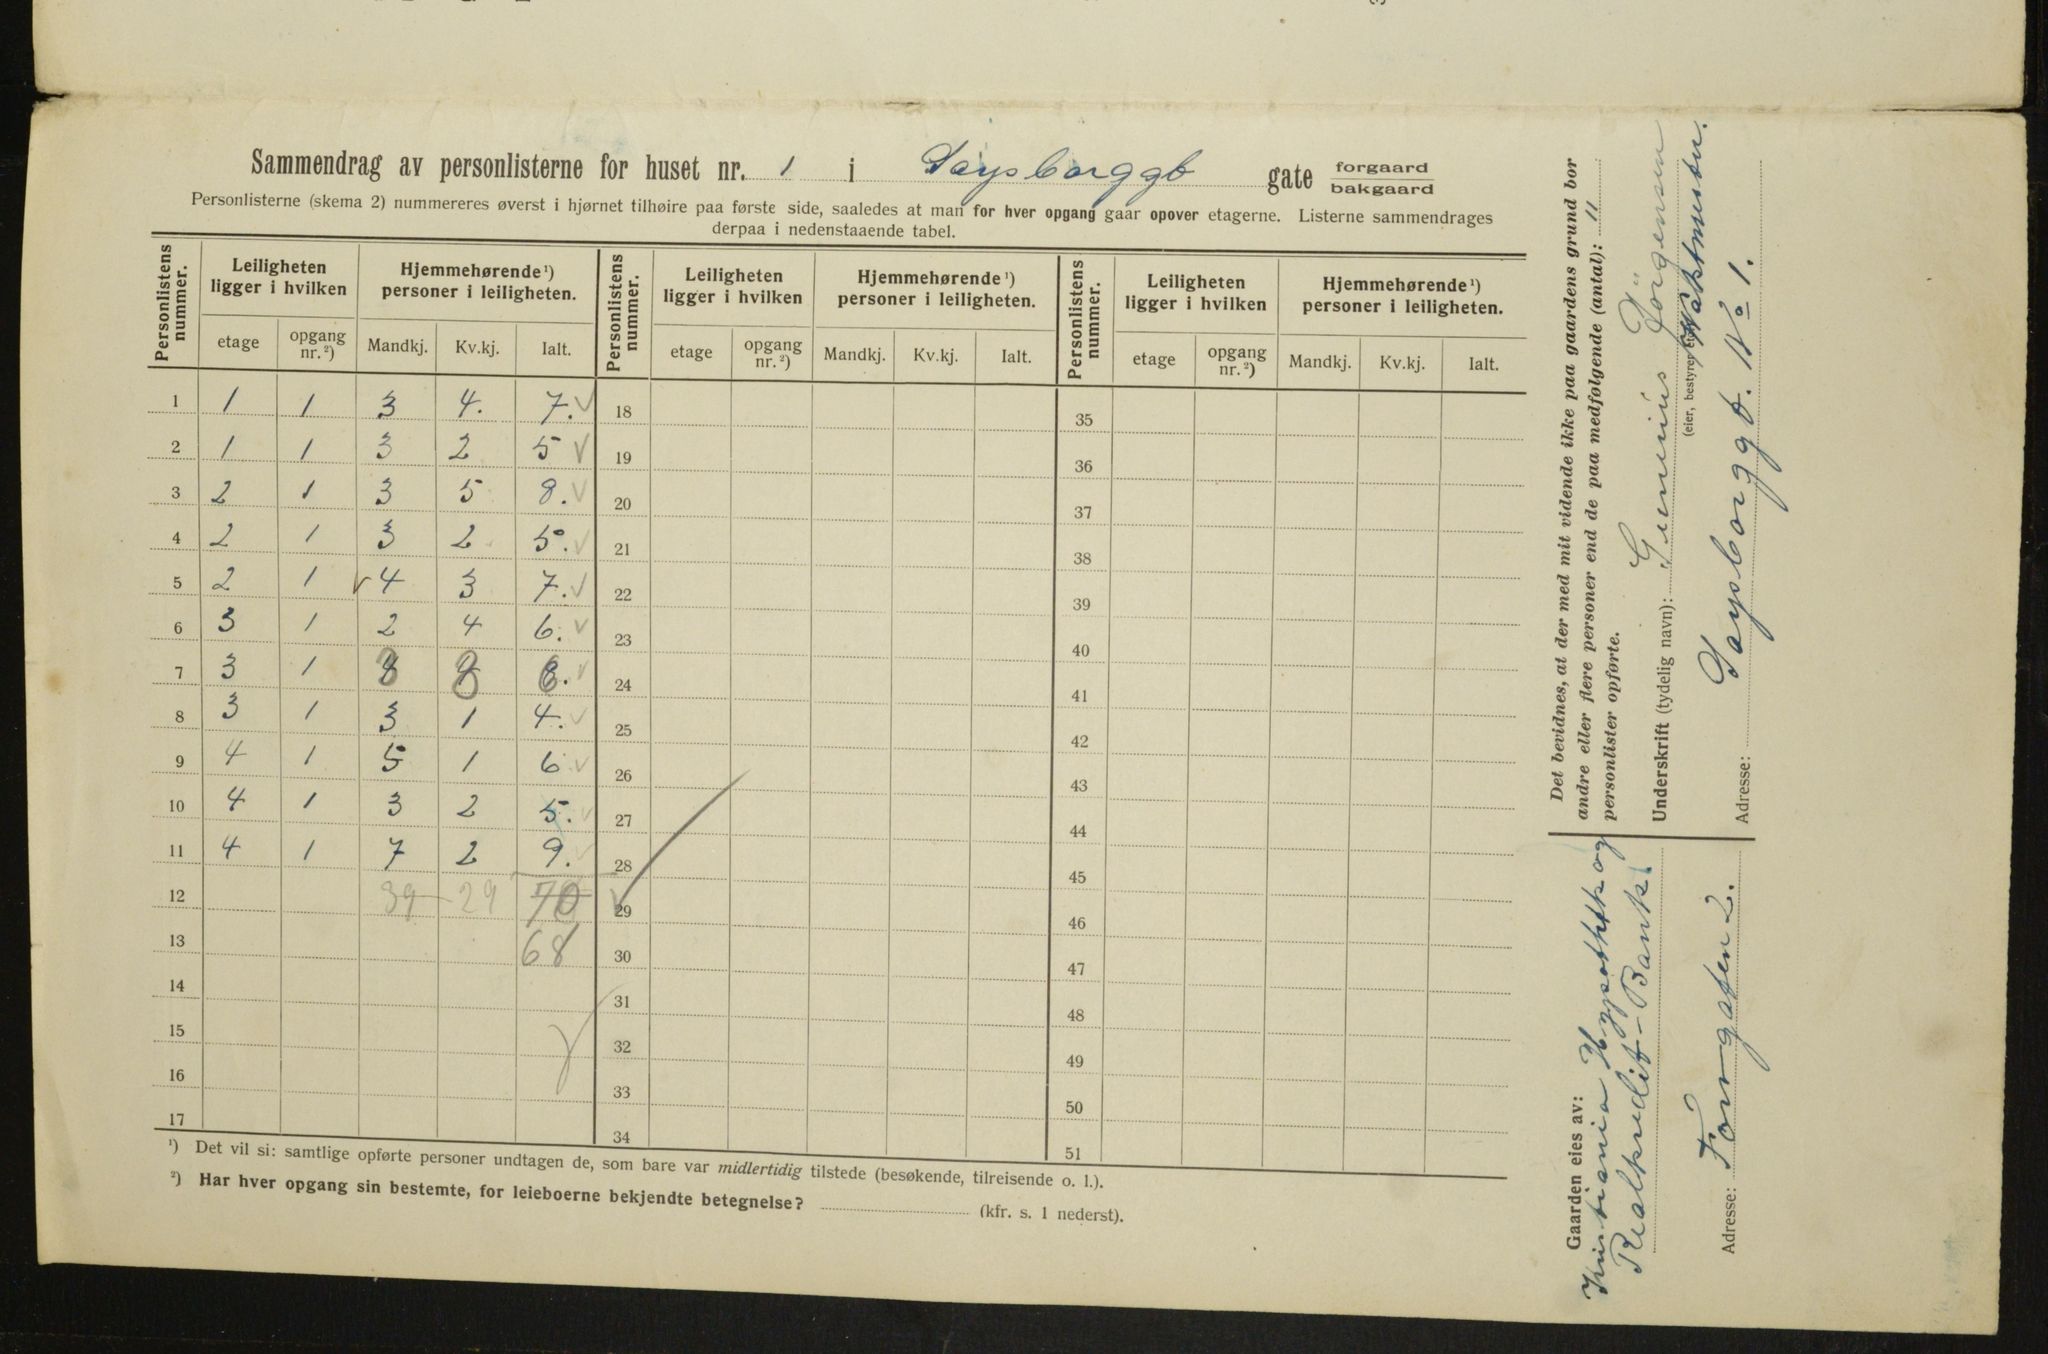 Sammendrag av personlisterne for huset nr. 1 i Sarpsborggt gate forgaard bakgaard
Personlisterne (skema 2) nummereres øverst i hjørnet tilhøire paa første side, saaledes at man for hver opgang gaar opover etagerne. Listerne sammendrages
derpaa i nedenstaaende tabel.
Personlistens nummer. Leiligheten ligger i hvilken Hjemmehørende ¹) personer i leiligheten. Personlistens nummer. Leiligheten ligger i hvilken Hjemmehørende ¹) personer i leiligheten. Personlistens nummer. Leiligheten ligger i hvilken Hjemmehørende ¹) personer i leiligheten.
etage opgang nr. ²) Mandkj. Kv.kj. Ialt. etage opgang nr. ²) Mandkj. Kv.kj. Ialt. etage opgang nr. ²) Mandkj. Kv.kj. Ialt.
1 1 1 3 4. 7. 18 35
2 1 1 3 2 5 19 36
3 2 1 3 5 8. 20 37
4 2 1 3 2 5. 21 38
5 2 1 4 3 7. 22 39
6 3 1 2 4 6. 23 40
7 3 1 24 41
8 3 1 3 1 4. 25 42
9 4 1 5 1 6 26 43
10 4 1 3 2 5. 27 44
11 4 1 7 2 9. 28 45
12 39 29 70 29 46
13 68 30 47
14 31 48
15 32 49
16 33 50
17 34 51
¹) Det vil si: samtlige opførte personer undtagen de, som bare var midlertidig tilstede (besøkende, tilreisende o. l.).
²) Har hver opgang sin bestemte, for leieboerne bekjendte betegnelse? (kfr. s. 1 nederst).
Det bevidnes, at der med mit vidende ikke paa gaardens grund bor
andre eller flere personer end de paa medfølgende (antal): 11
personlister opførte.
Underskrift (tydelig navn): Gunerius Jörgensen
(eier, bestyrer Vaktmester.
Adresse: Sarpsborggt. No 1.
Gaarden eies av:
Kristiania Hypothek og
Realkredit-Bank.
Adresse: Torvgaten 2.